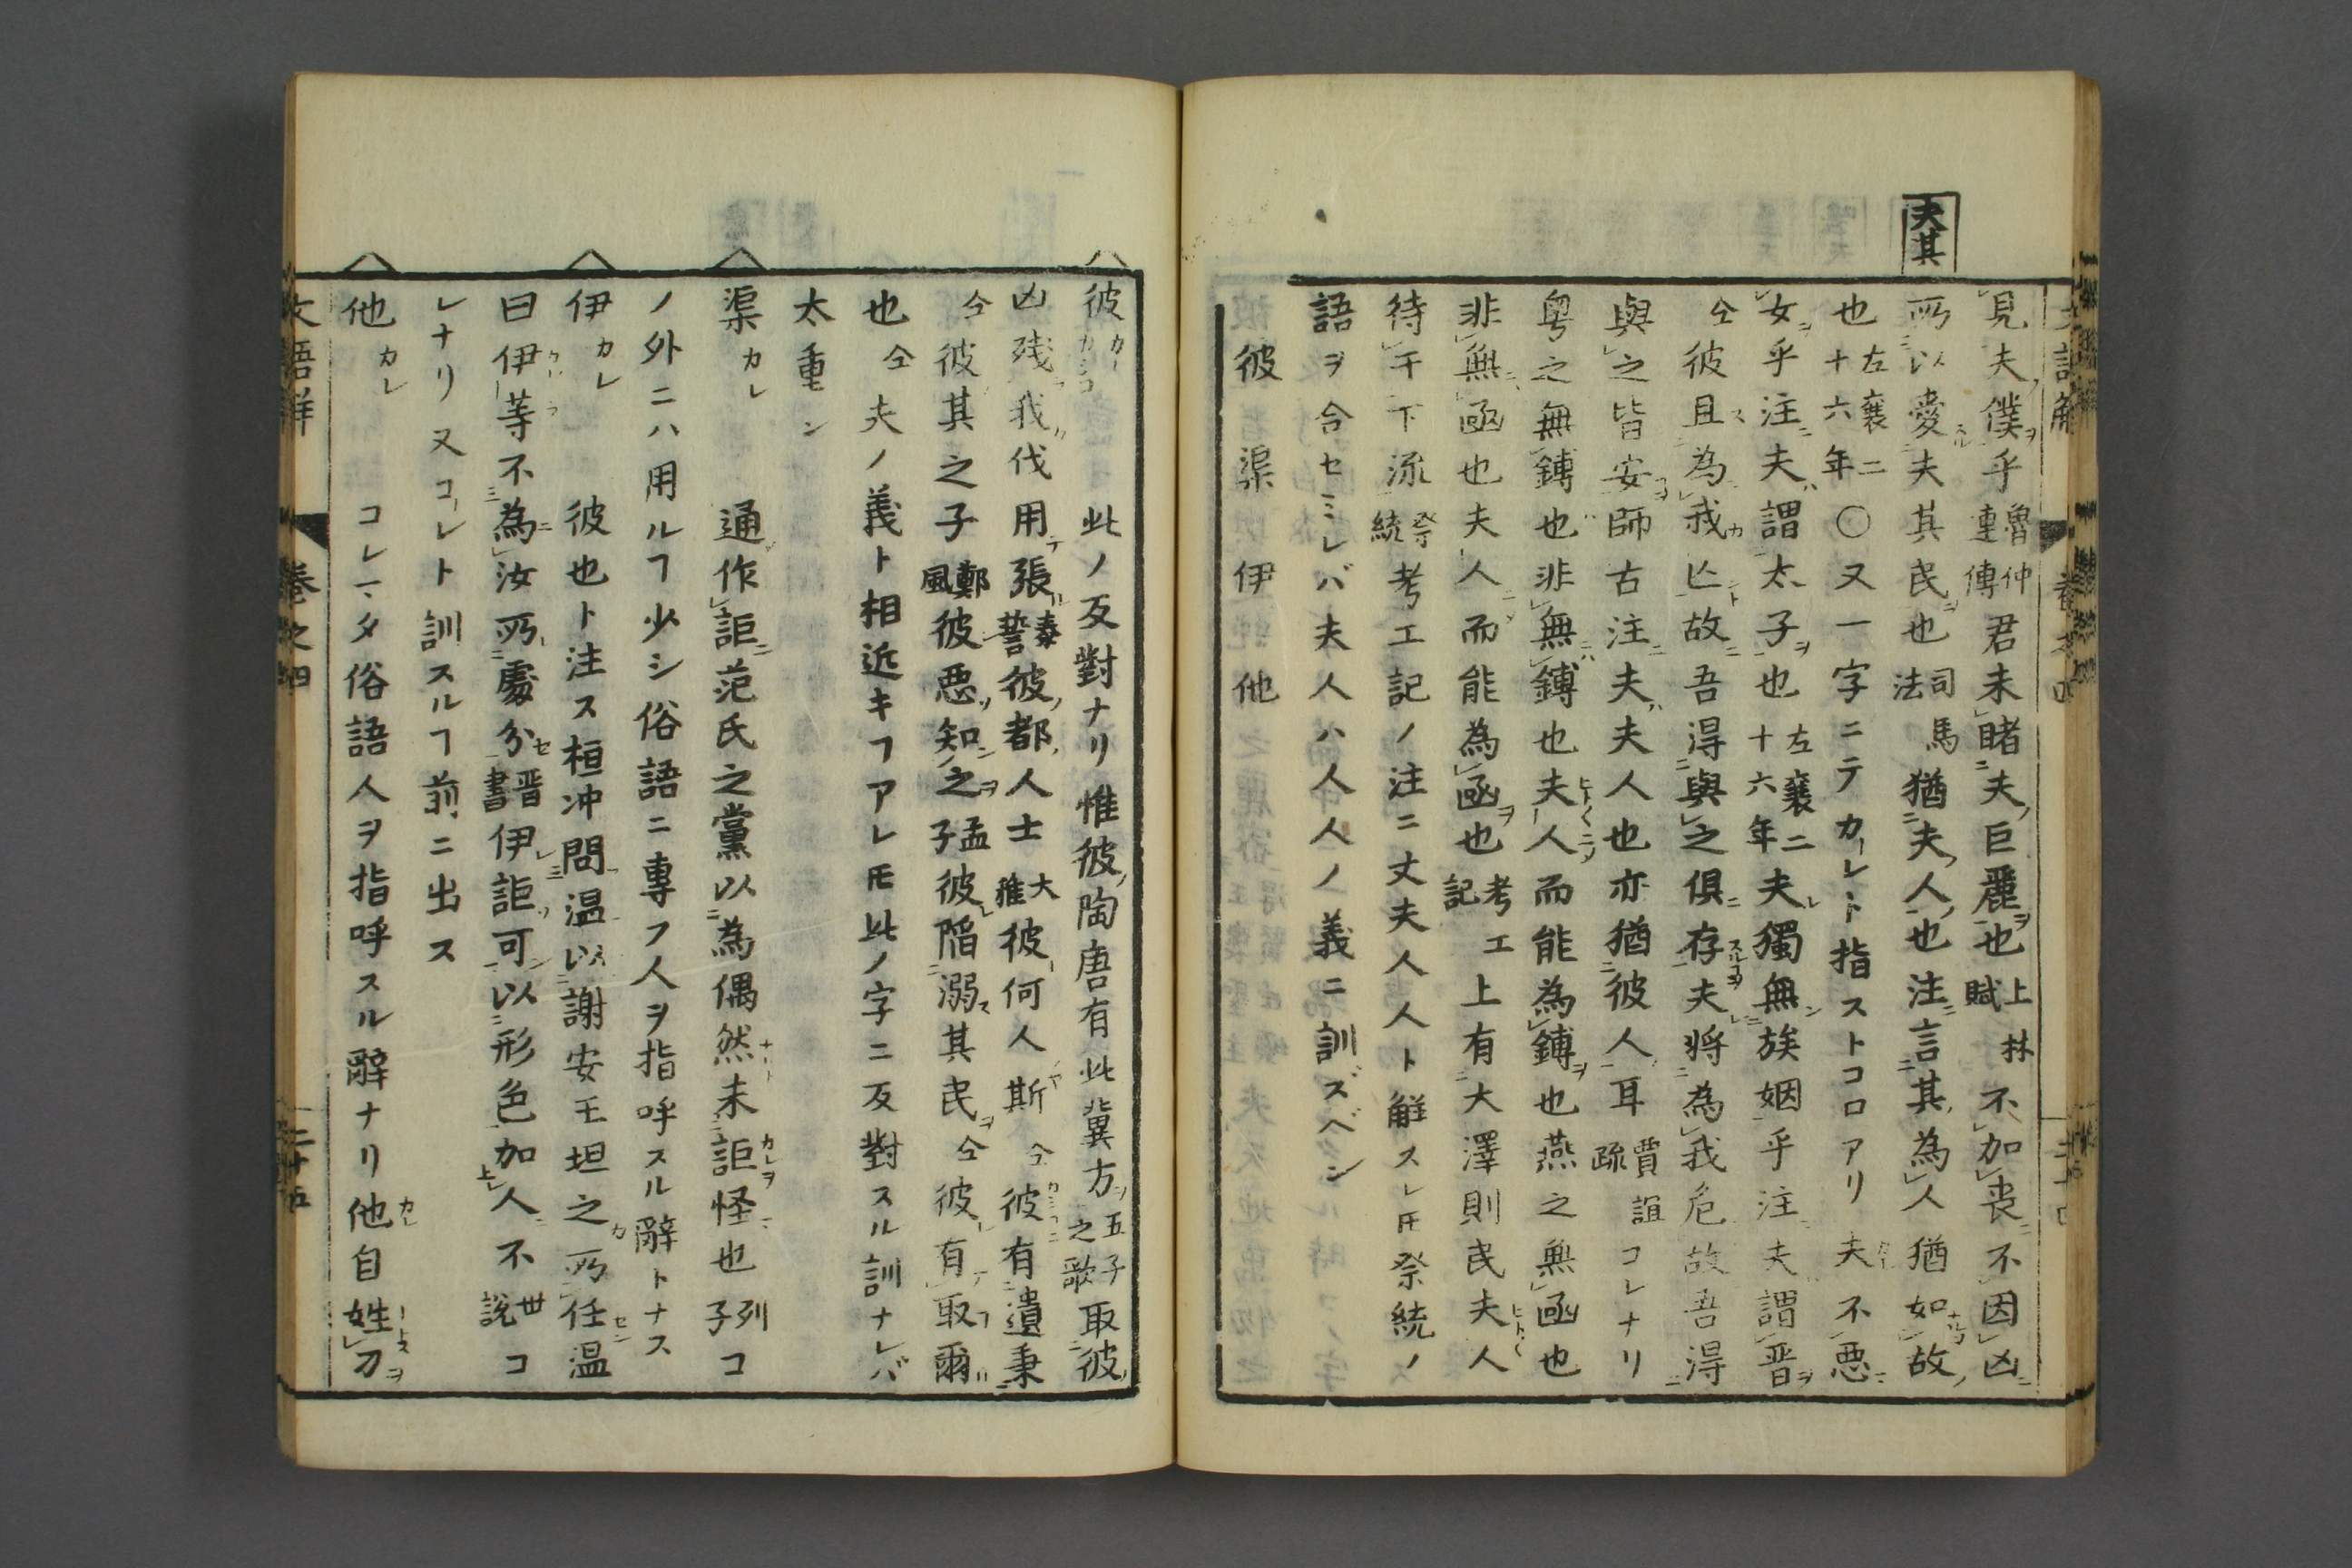 夫其
見夫僕乎魯仲連傳君未睹夫巨麗也上林賦不加喪不因凶
所以愛夫其民也司馬法猶夫人也注言其為人猶如故
也左襄二十六年〇又一字ニテカレト指ストコロアリ夫不惡
女乎注夫謂太子也左襄二十六年夫獨無族姻乎注夫謂晋
仝彼且為我亡故吾得與之俱存夫将為我危故吾得
與之皆安師古注夫夫人也亦猶彼人耳賈誼疏コレナリ
粤之無鎛也非無鎛也夫人而能為鎛也燕之無函也
非無函也夫人而能為函也考工記上有大澤則民夫人
待于下流祭統考工記ノ注ニ丈夫人人ト解スレ𪜈祭統ノ
語ヲ合セミレバ夫人ハ人人ノ義ニ訓ズベシ
彼 渠 伊 他
彼カーカシコ 此ノ反對ナリ惟彼陶唐有此冀方五子之歌取彼
凶残我代用張泰誓彼都人士大雅彼何人斯仝彼有遺秉
仝彼其之子鄭風彼惡知之孟子彼陷溺其民仝彼有取爾
也仝夫ノ義ト相近キヿアレ𪜈此ノ字ニ反對スル訓ナレバ
太重シ
渠カレ 通作詎范氏之黨以為偶然未詎怪也列子コ
ノ外ニハ用ルヿ少シ俗語ニ專フ人ヲ指呼スル辭トナス
伊カレ 彼也ト注ス桓冲問温以謝安王坦之所任温
曰伊等不為汝所處分晋書伊詎可以形色加人不世説コ
レナリ又コレト訓スルヿ前ニ出ス
他カレ コレマタ俗語人ヲ指呼スル辭ナリ他自姓刀
文語解 巻之四 二十五